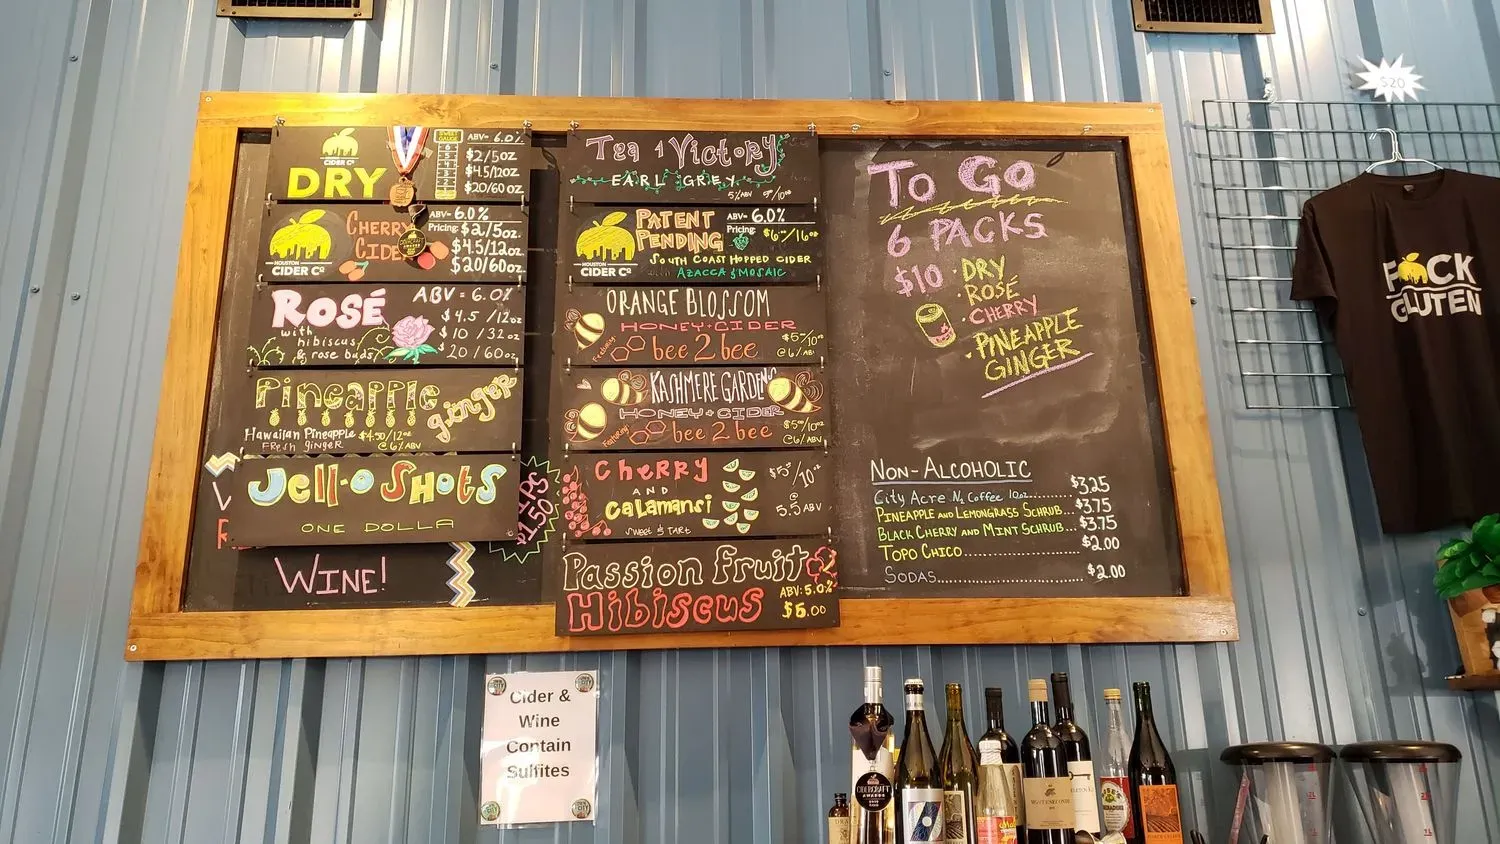 CIDER Cº
DRY
ABV= 6.0%
$2/5oz
$4.5/12oz
$20/60oz
HOUSTON
CIDER Cº
CHERRY
CIDER
ABV= 6.0%
Pricing: $2/5oz.
$4.5/12oz
$20/60oz.
ROSÉ
with
hibiscus
& rose buds
ABV = 6.0%
$4.5/12oz
$10/32oz
$20/60oz
Pineapple
ginger
Hawaiian Pineapple $4.50/12oz
FRESH GINGER @6% ABV
Jell-o SHOTS
ONE DOLLA
WINE!
$1.50
Tea 4 Victory
EARL GREY
HOUSTON
CIDER Cº
PATENT
PENDING
ABV= 6.0%
Pricing:
$6/16oz
SOUTH COAST HOPPED CIDER
with AZACCA & MOSAIC
ORANGE BLOSSOM
HONEY+CIDER
Featuring bee 2 bee
$5/10oz
@6% ABV
KASHMERE GARDENS
HONEY+CIDER
Featuring bee 2 bee
$5/10oz
@6% ABV
CHERRY
AND
CALAMANSI
SWEET & TART
$5/10oz
@
5.5 ABV
Passion Fruit
Hibiscus
ABV: 5.0%
$5.00
To Go
6 PACKS
$10
· DRY
· ROSÉ
· CHERRY
· PINEAPPLE
GINGER
NON-ALCOHOLIC
City Acre N₂ Coffee 10oz.......... $3.25
PINEAPPLE AND LEMONGRASS SCHRUB... $3.75
BLACK CHERRY AND MINT SCHRUB... $3.75
TOPO CHICO...................... $2.00
SODAS............................ $2.00
$20
F CK
GLUTEN
Cider &
Wine
Contain
Sulfites
CIDERCRAFT
AWARDS